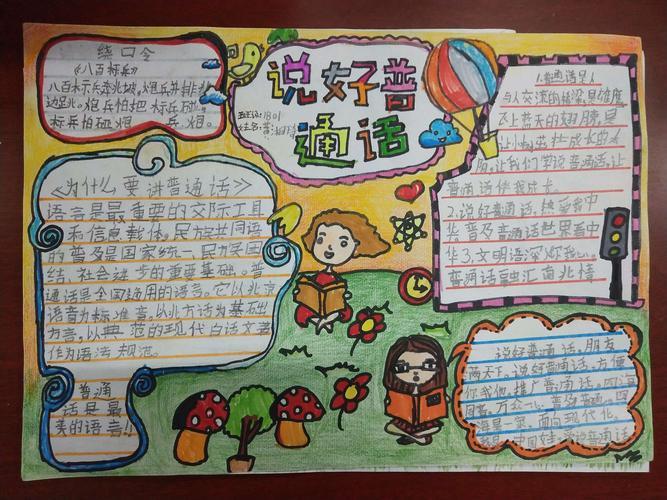 绕口令
《八百标兵》
八百标兵奔北坡,炮兵并排北
边跑。炮兵怕把标兵碰
标兵怕碰炮兵炮。
说好普
通话
班级:1801
姓名:
《为什么要讲普通话》
语言是最重要的交际工具
和信息载体。民族共同语
的普及是国家统一、民族团
结、社会进步的重要基础。普
通话是全国通用的语言。它以北京
语音为标准音,以北方话为基础
方言,以典范的现代白话文著
作为语法规范。
普通
话是最
美的语言!!
1.普通话是人
与人交流的桥梁,是雄鹰
飞上蓝天的翅膀,是
让小树茁壮成长的水
源,让我们学说普通话,让
普通话伴我成长。
2.说好普通话,热爱我中
华,普及普通话世界看中
华3.文明语深你我心。
普通话融汇南北情
说好普通话,朋友
遍天下。说好普通话,方便
你我他,推广普通话。四海
是一家,面向现代化,
中国娃,爱说普通话